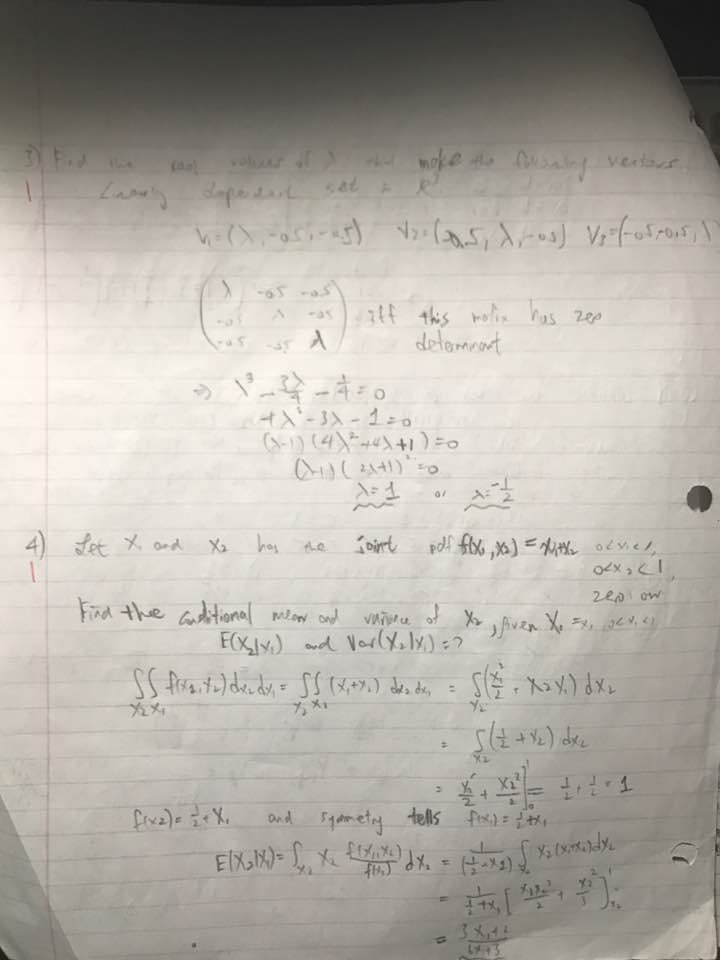 3) Find the real values of λ that make the following vectors
1 linearly dependent set in R³
V₁=(λ, -0.5, -0.5) V₂=(-0.5, λ, -0.5) V₃=(-0.5, -0.5, λ)
λ -0.5 -0.5
-0.5 λ -0.5 iff this matrix has zero
-0.5 -0.5 λ determinant
⇒ λ³ - 3λ/4 - 1/4 = 0
4λ³ - 3λ - 1 = 0
(λ-1)(4λ²+4λ+1) = 0
(λ-1)(2λ+1)² = 0
λ = 1 or λ = -1/2
4) Let X₁ and X₂ has the joint pdf f(x₁,x₂) = x₁+x₂ 0<x₁<1,
1 0<x₂<1,
zero ow
Find thee conditional mean and variance of X₂, given X₁ = x₁ 0<x₁<1
E(X₂|x₁) and Var(X₂|x₁) = ?
∫∫ f(x₁,x₂) dx₂dx₁ = ∫∫ (x₁+x₂) dx₂dx₁ = ∫(x₁²/2 + x₂x₁) dx₂
= ∫(1/2 + x₂) dx₂
= x₂/2 + x₂²/2 ]₀¹ = 1/2 + 1/2 = 1
f(x₂) = 1/2 + x₂ and symmetry tells f(x₁) = 1/2 + x₁
E(X₂|X₁) = ∫ x₂ f(x₁,x₂)/f(x₁) dx₂ = 1/(1/2+x₁) ∫ x₂(x₁+x₂)dx₂
= 1/(1/2+x₁) [x₁x₂²/2 + x₂³/3]
= (3x₁+2)/(6x₁+3)